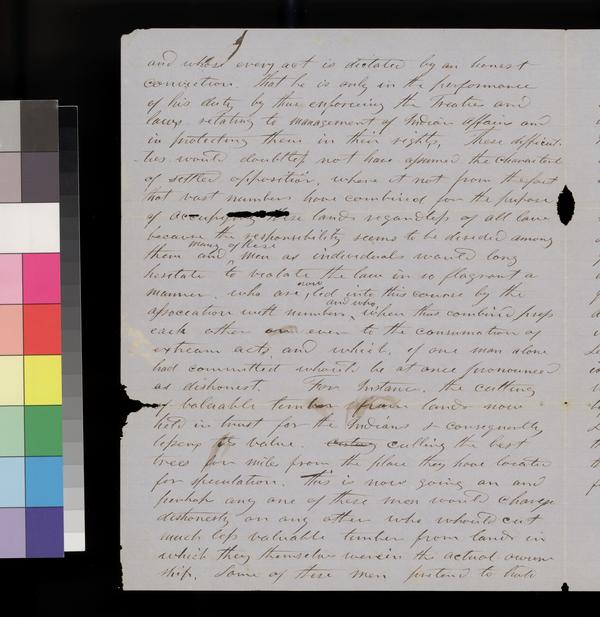 and whose every act is dictated by an honest
conviction that he is only in the performance
of his duty by thus enforcing the treaties and
laws relating to management of Indian affairs and
in protecting them in their rights. These difficul-
ties would doubtless not have assumed the character
of settled opposition, where it not from the fact
that vast numbers have combined for the purpose
of occupying these lands regardless of all law
because the responsibility seems to be divided among
many of these
them and men as individuals would long
hesitate to violate the law in so flagrant a
now
manner, who are, led into this course by the
and who,
association with numbers, when thus combined press
each other on even to the consumation of
extream acts, and which, if one man alone
had committed would be at once pronounced
as dishonest. For Instance, the cutting
of valuable timber from lands now
held in trust for the Indians & consequently
lessens its value. culling the best
trees for miles from the place they have located
for speculation. This is now going on and
perhaps any one of these men would charge
dishonesty on any other who whould cut
much less valuable timber from lands in
which they themselves were in the actual owner
ship. Some of these men pretend to hold